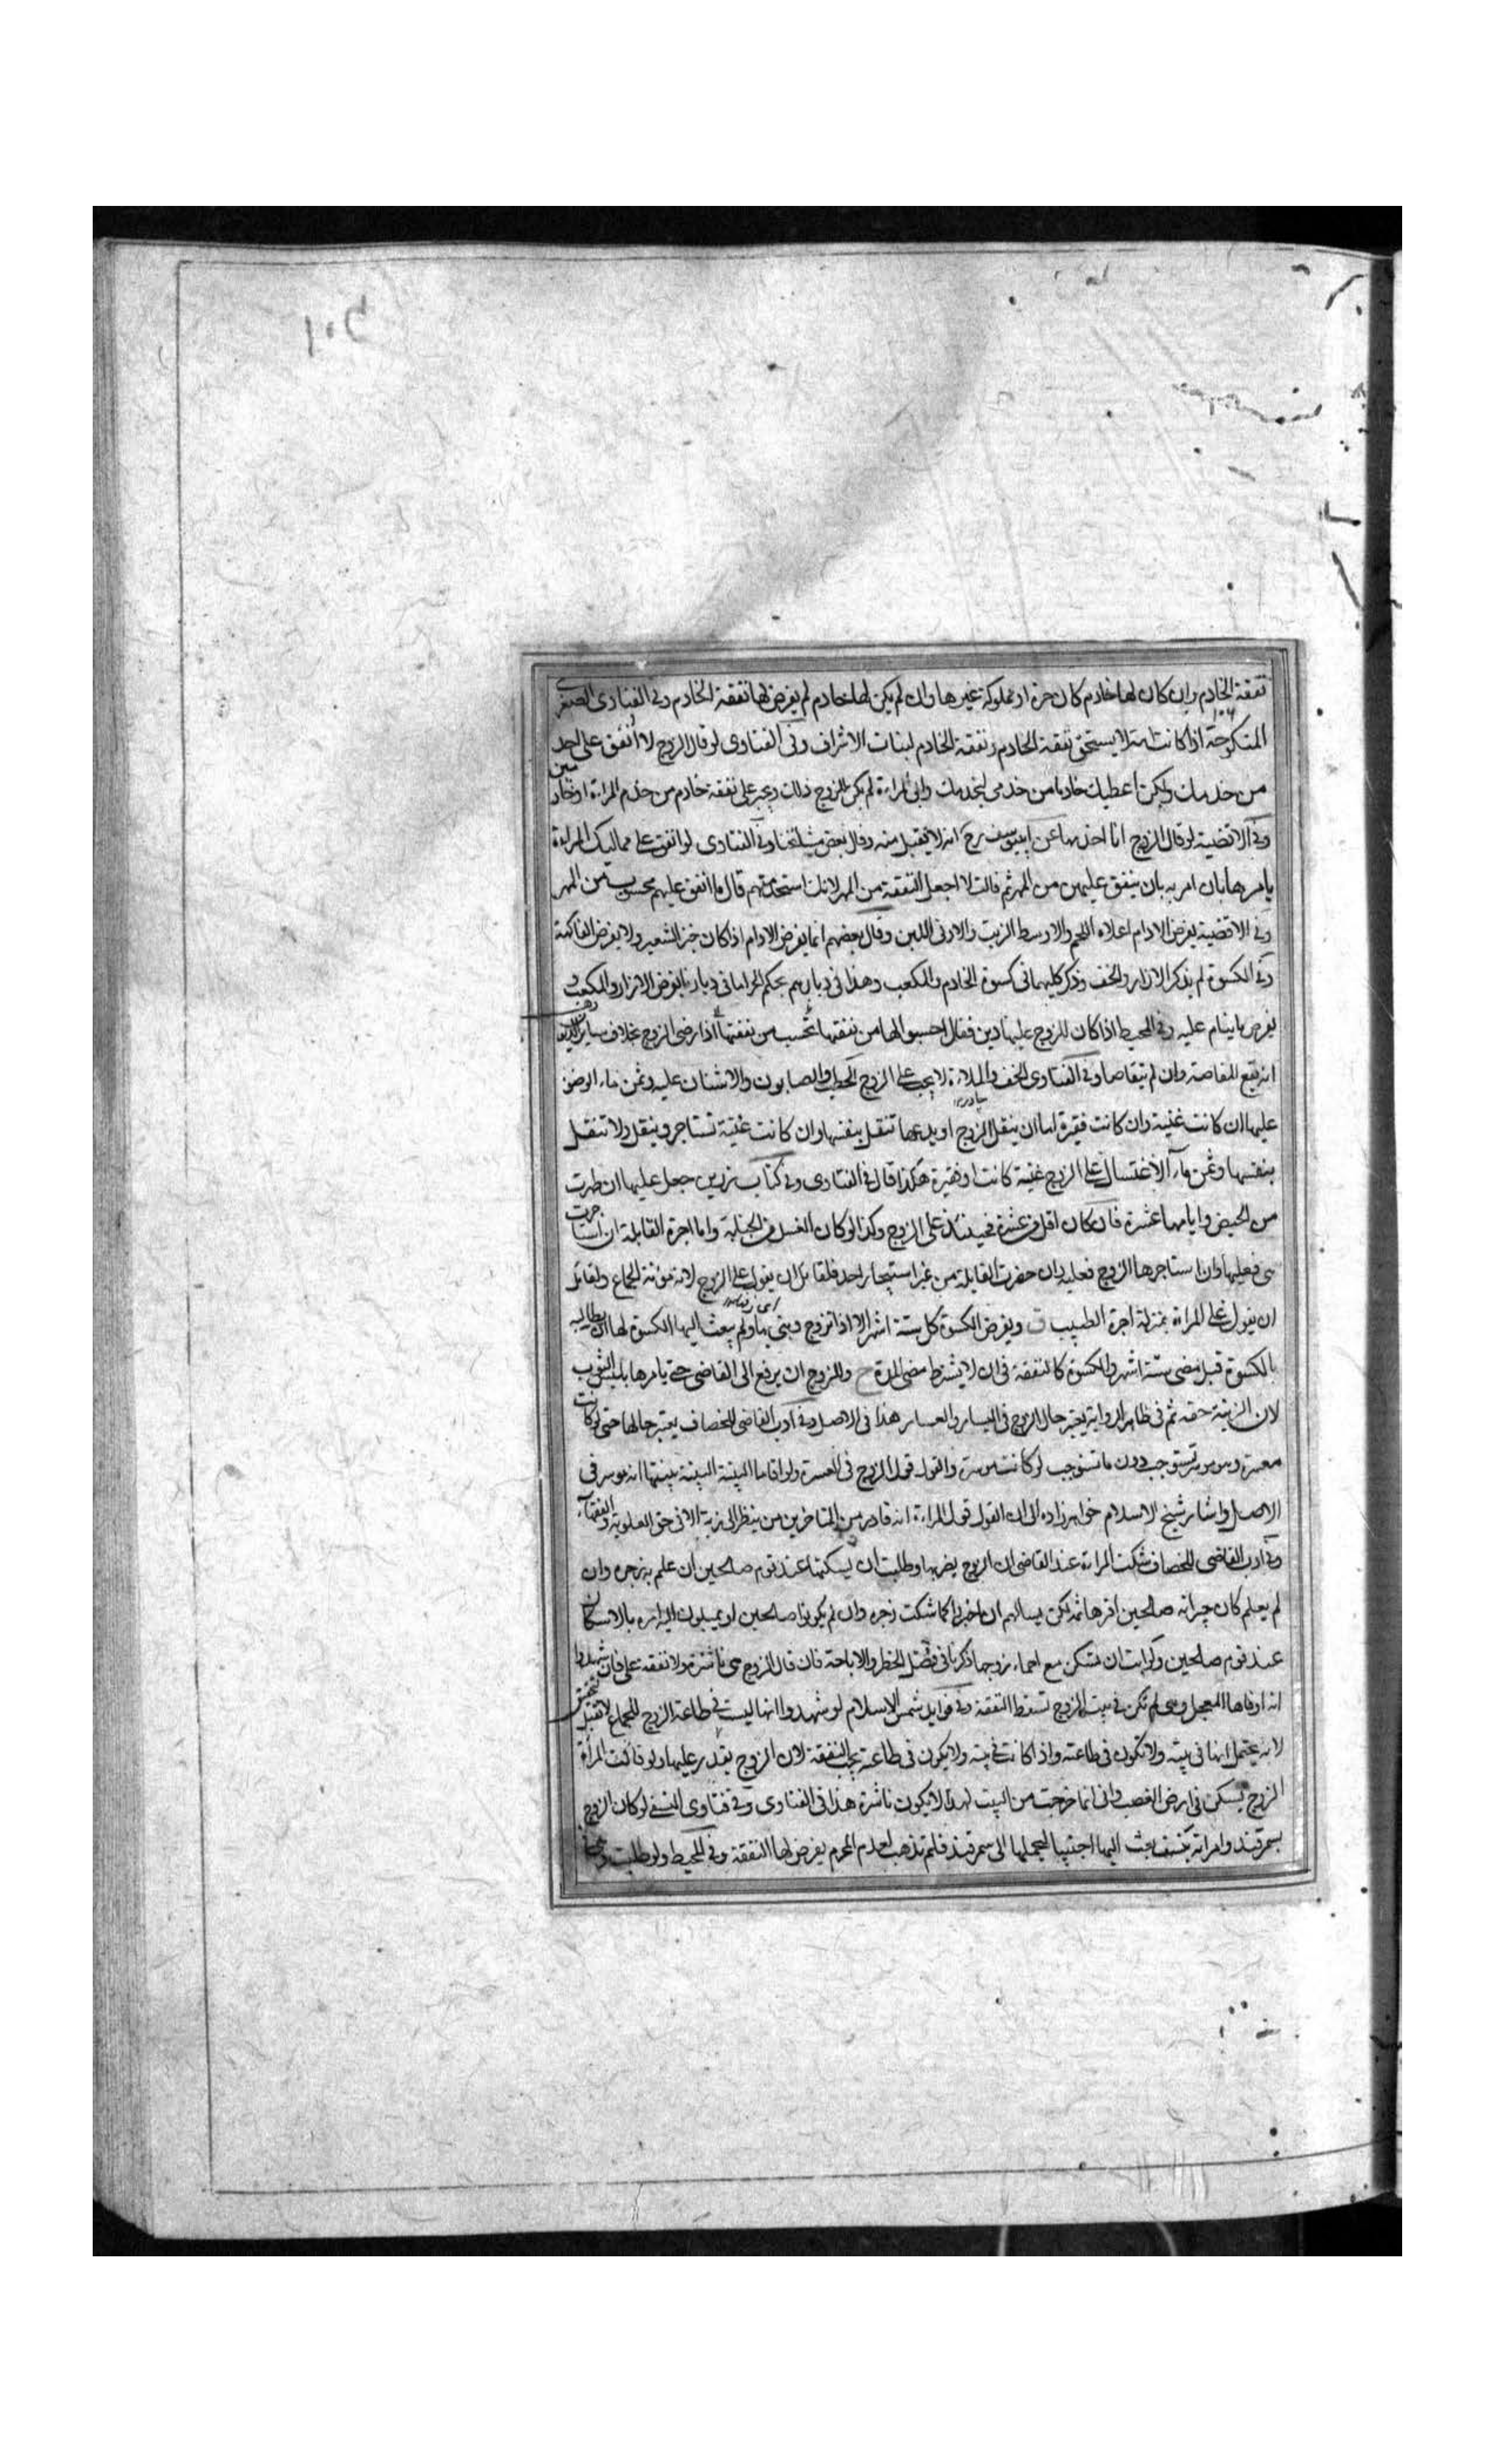 نفقة الخادم وان كان لها خادم كان حرة او مملوكة غيرها وان لم يكن لها خادم لم يفرض لها نفقة الخادم وفى الفتاوى الصغرى
المنكوحة اذا كانت امة لا يستحق نفقة الخادم ونفقة الخادم لبنات الاشراف وفى الفتاوى لو قال الزوج لا انفق على احد
من خدمك ولكن اعطيك خادما من خدمى ليخدمك وابى المراءة لم يكن للزوج ذلك ويجبر على نفقة خادم من خدم المراءة
وفى الاقضية لو قال الزوج انا اخدمها عن ابى يوسف رح انه لا يقبل منه وقال بعض مشايخنا وفى الفتاوى لو انفق على مماليك المراءة
يامرها بان امر به بان ينفق عليهن من المهر ثم قالت لا اجعل النفقة من المهر لانك استخدمتهم قال ما انفق عليهم محسوب من المهر
وفى الاقضية يفرض الادام اعلاه اللحم والاوسط الزيت والادنى اللبن وقال بعضهم انما يفرض الادام اذا كان خبز الشعير ولا يفرض الفاكهة
وفى الكسوة لم يذكر الازار والخف وذكر كليهما فى كسوة الخادم والمكعب وهذا فى ديارهم بحكم الحر اما فى ديارنا يفرض الازار والمكعب و
يفرض ما ينام عليه وفى المحيط اذا كان للزوج عليها دين فقال احسبوا لها من نفقتها تحسب من نفقتها اذا رضى الزوج بخلاف ساير الديون
انه تقع المقاصة وان لم يتقاصا وفى الفتاوى الخف والملاءة لا يجب على الزوج الحطب والصابون والاشنان عليه وثمن ماء الوضوء
عليها ان كانت غنية وان كانت فقيرة اما ان ينقل الزوج او يدعها تنقل بنفسها وان كانت غنية تستاجر وينقل ولا تنقل
بنفسها وثمن ماء الاغتسال على الزوج غنية كانت او فقيرة هكذا قال فى الفتاوى وفى كتاب رزين جعل عليها ان طهرت
من الحيض وايامها عشرة فان كان اقل من عشرة فحينئذ على الزوج وكذا لو كان الغسل من الجنابة واما اجرة القابلة ان استاجرت
هى فعليها وان استاجرها الزوج فعليه وان حضرت القابلة من غير استيجار احد فلقائل ان يقول على الزوج لانه مؤنة الجماع ولقائل
ان يقول على المراءة بمنزلة اجرة الطبيب ق ويفرض الكسوة كل ستة اشهر الا اذا تزوج وبنى بها ولم يبعث اليها الكسوة لها ان يطالبه
بالكسوة قبل مضى ستة اشهر والكسوة كالنفقة فى ان لا يشترط مضى المدة ح وللزوج ان يرفع الى القاضى حتى يامرها بلبس الثوب
لان الزينة حقه ثم فى ظاهر الرواية يعتبر حال الزوج فى اليسار والعسار هذا فى الاصل وفى ادب القاضى للخصاف يعتبر حالها حتى لو كانت
معسرة وهو موسر تستوجب دون ما تستوجب لو كانت موسرة والقول قول الزوج فى العسرة ولو اقاما البينة البينة بينتها انه موسر فى
الاصل واشار شيخ الاسلام خواهر زاده الى ان القول قول المراءة انه قادر من المتاخرين من ينظر الى زيه الا فى حق العلوية والفقهاء
وفى ادب القاضى للخصاف شكت المراءة عند القاضى ان الزوج يضربها وطلبت ان يسكنها عند قوم صالحين ان علم به زجره وان
لم يعلم كان جيرانه صالحين اقرها ثمه لكن يسالهم ان اخبروا كما شكت زجره وان لم يكونوا صالحين او يميلون اليه امره بالاسكان
عند قوم صالحين ولو ابت ان تسكن مع احماء زوجها ذكرنا فى فصل الحظر والاباحة فان قال الزوج هى ناشزة ولا نفقة على فان شهدوا
انه اوفاها المعجل وهى لم تكن فى بيت الزوج تسقط النفقة وفى فوايد شمس الاسلام لو شهدوا انها ليست فى طاعة الزوج للجماع لا تقبل
لانه يحتمل انها فى بيته ولا تكون فى طاعته واذا كانت فى بيته ولا يكون فى طاعته يجب النفقة لان الزوج يقدر عليها ولو قالت المرأة
الزوج يسكن فى ارض الغصب وانى انما خرجت من البيت لهذا لا يكون ناشزة هذا فى الفتاوى وفى فتاوى النسفى لو كان الزوج
بسمرقند وامراته بنسف بعث اليها اجنبيا ليحملها الى سمرقند فلم تذهب لعدم المحرم يفرض لها النفقة وفى المحيط ولو طلبت